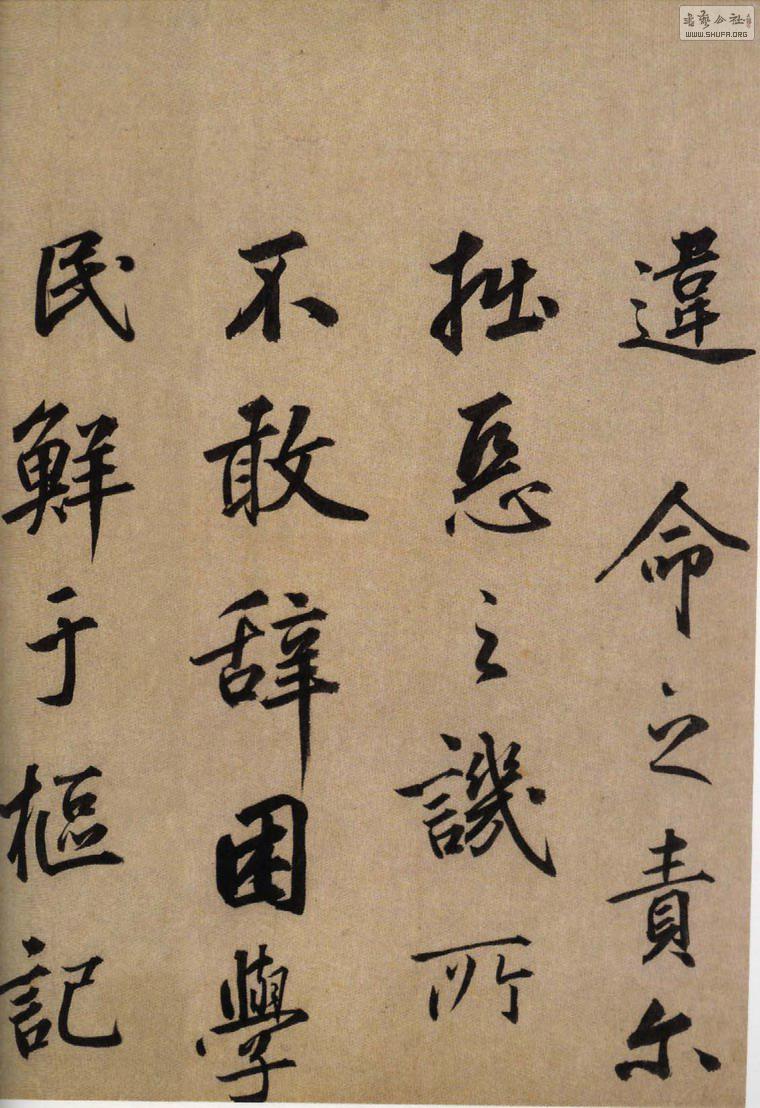 違命之責尔
拙惡之譏所
不敢辞困學
民鮮于樞記
書藝公社
WWW.SHUFA.ORG